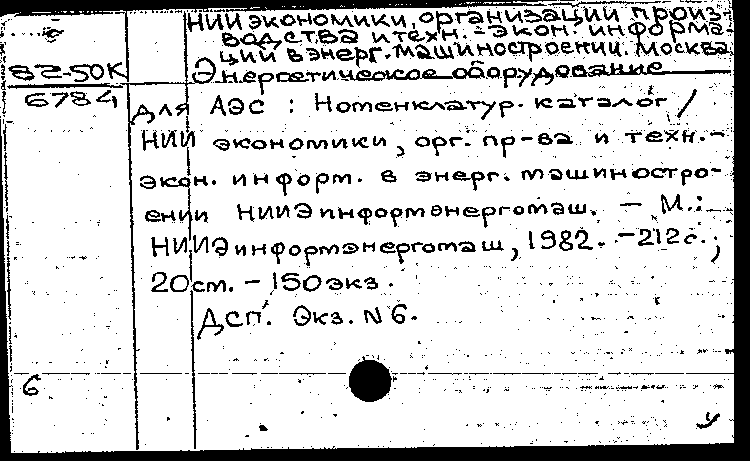 НИИ экономики, организации произ-
водства и техн.-экон. информа-
ции в энерг. машиностроении. Москва
82-50К
Энергетическое оборудование
6784
для АЭС : Номенклатур. каталог /
НИИ экономики, орг. пр-ва и техн.-
экон. информ. в энерг. машиностро-
ении НИИЭинформэнергомаш. - М.:
НИИЭинформэнергомаш, 1982. - 212с.;
20см. - 150экз.
ДСП. Экз. N 6.
6
У